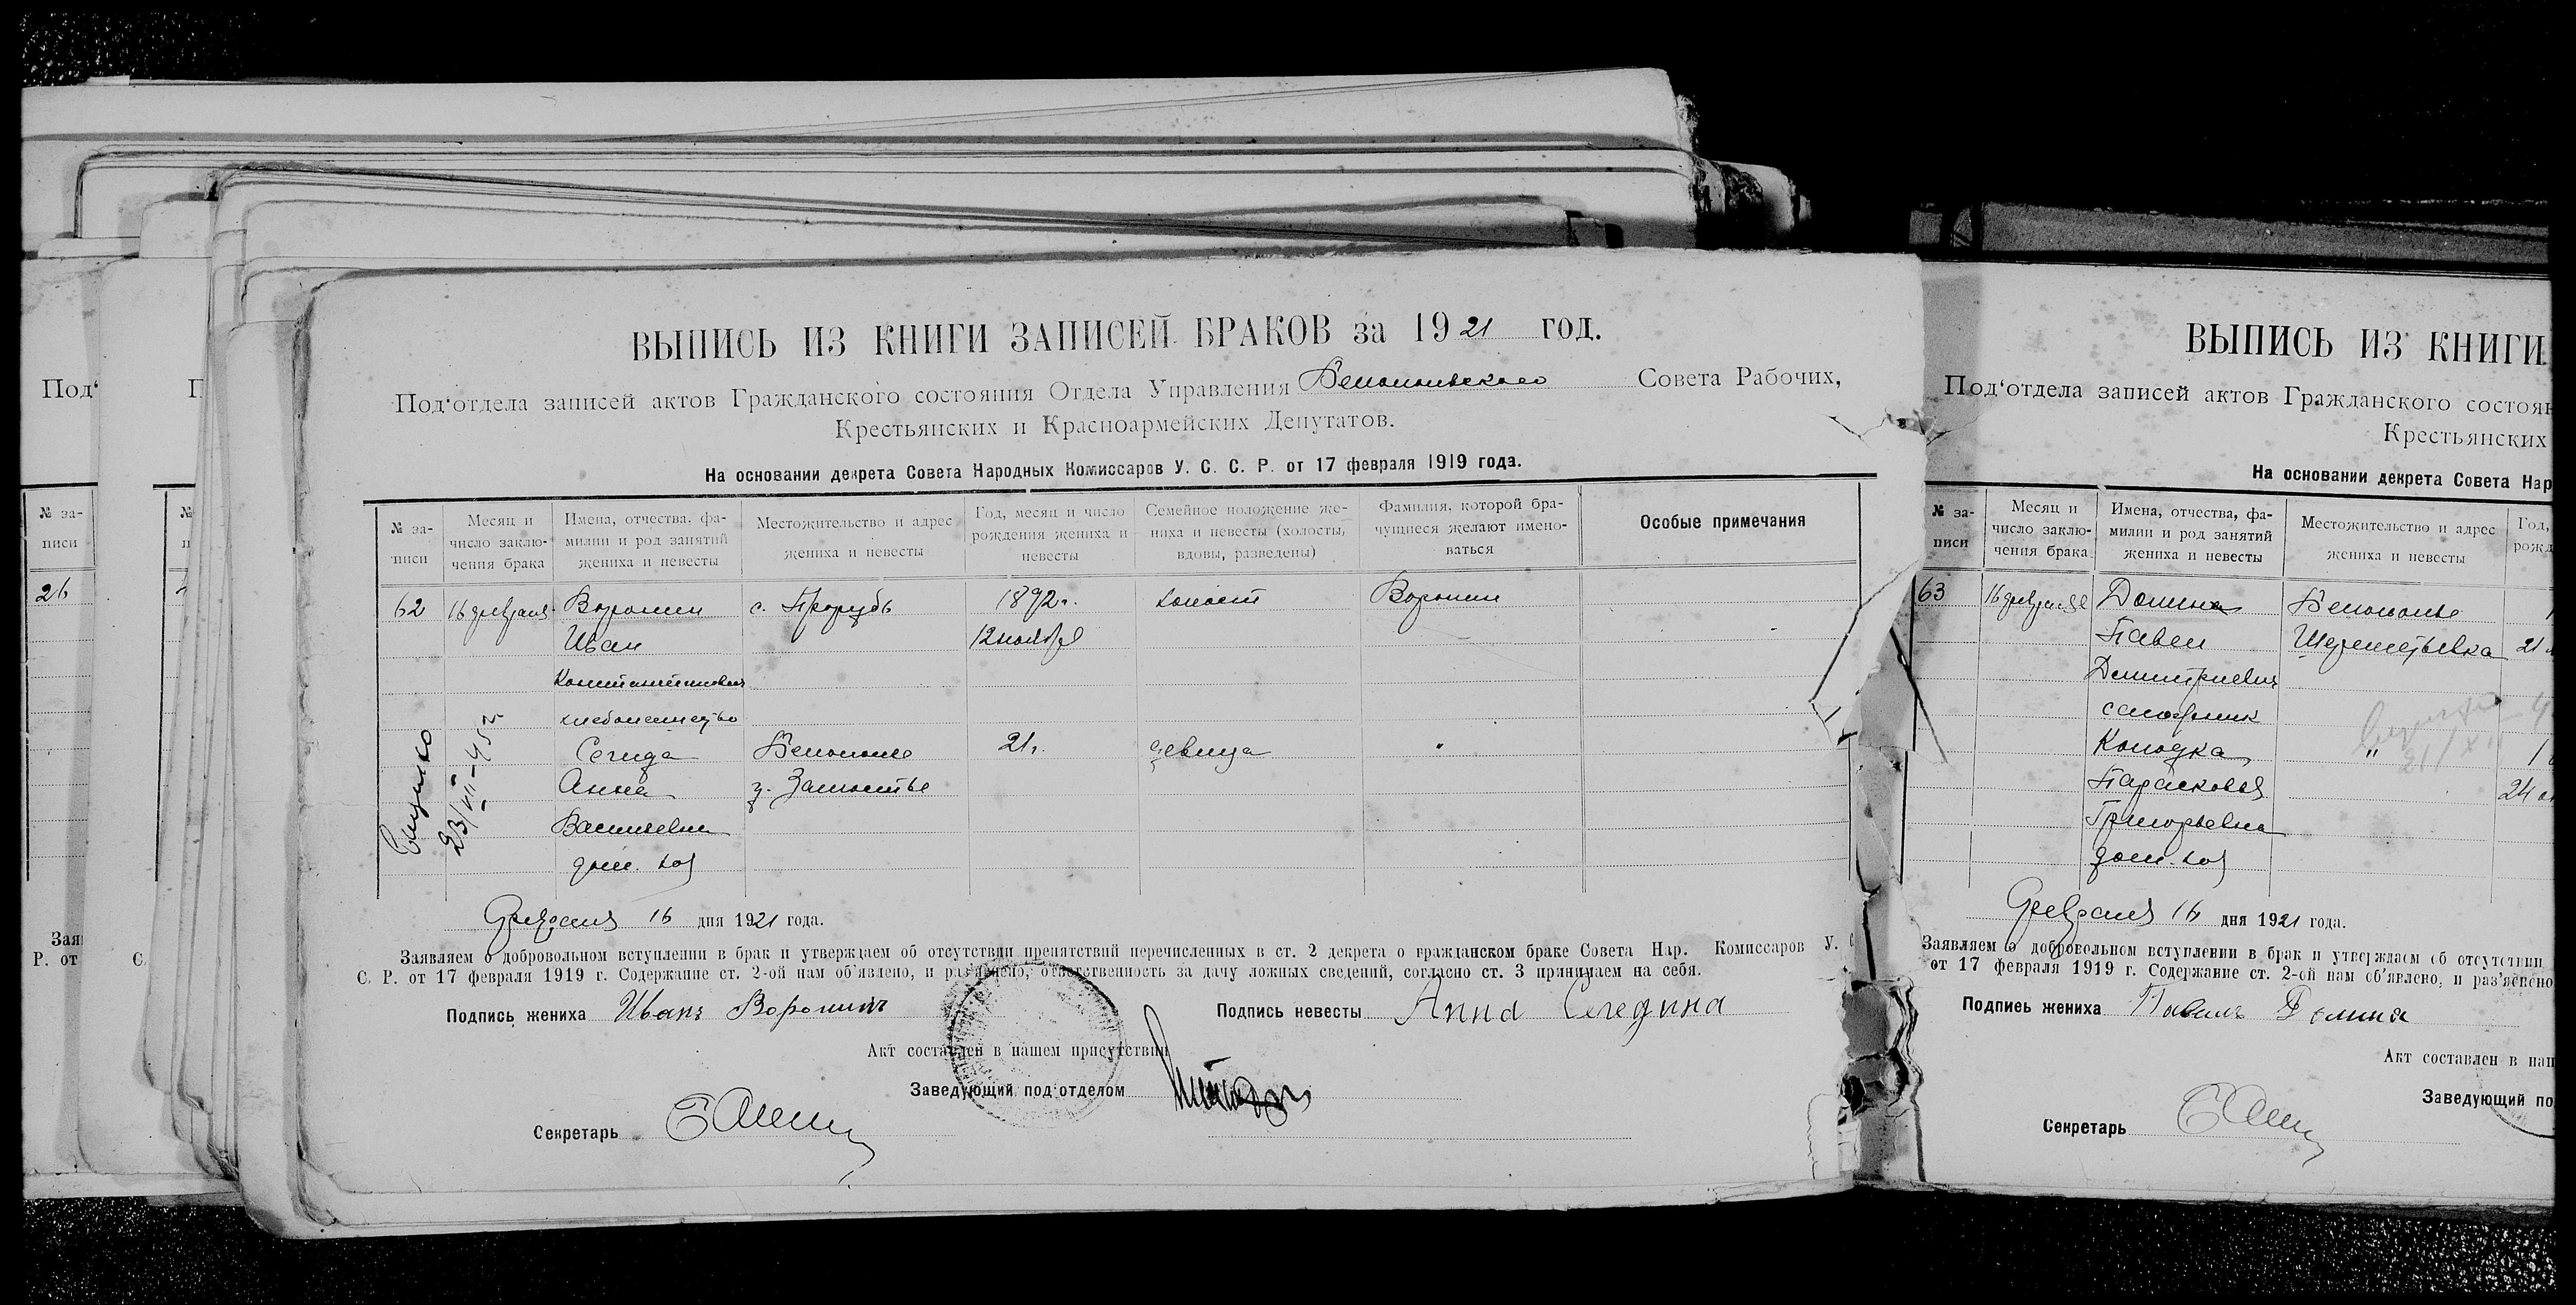 ВЫПИСЬ ИЗ КНИГИ ЗАПИСЕЙ БРАКОВ за 1921 год.
Под‘отдела записей актов Гражданского состояния Отдела Управления Белопольского Совета Рабочих,
Крестьянских и Красноармейских Депутатов.
На основании декрета Совета Народных Комиссаров У. С. С. Р. от 17 февраля 1919 года.
№ за-
писи
Месяц и
число заклю-
чения брака
Имена, отчества, фа-
милии и род занятий
жениха и невесты
Местожительство и адрес
жениха и невесты
Год, месяц и число
рождения жениха и
невесты
Семейное положение же-
ниха и невесты (холосты,
вдовы, разведены)
Фамилия, которой бра-
чущиеся желают имено-
ваться
Особые примечания
62 16 февраля Воронин с. Прорубь 1892 г. холост Воронин
Иван 12 ноября
Константинович
хлебопашество
Сегида Белополье 21 г. девица "
Анна у. Замостье
Васильевна
дом. хоз
23/VII-45 г
Февраля 16 дня 1921 года.
Заявляем о добровольном вступлении в брак и утверждаем об отсутствии препятствий перечисленных в ст. 2 декрета о гражданском браке Совета Нар. Комиссаров У. С
С. Р. от 17 февраля 1919 г. Содержание ст. 2-ой нам об'явлено, и раз'яснено, ответственность за дачу ложных сведений, согласно ст. 3 принимаем на себя.
Подпись жениха Иванъ Воронинъ
Подпись невесты Анна Сегедина
Акт составлен в нашем присутствии
Заведующий под‘отделом
Секретарь
ВЫПИСЬ ИЗ КНИГИ
Под‘отдела записей актов Гражданского состоян
Крестьянских
На основании декрета Совета Нар
№ за-
писи
Месяц и
число заклю-
чения брака
Имена, отчества, фа-
милии и род занятий
жениха и невесты
Местожительство и адрес
жениха и невесты
Год,
рожд
63 16 февраля Домина Белополье
Павел Шереметьевка 21
Димитриевич
сапожник
Колодка "
Парасковья 24
Григорьевна
дом. хоз
Февраля 16 дня 1921 года.
Заявляем о добровольном вступлении в брак и утверждаем об отсутствии
от 17 февраля 1919 г. Содержание ст. 2-ой нам об'явлено, и раз'яснено
Подпись жениха Павелъ Домина
Акт составлен в наш
Заведующий по
Секретарь
Под‘
№ за-
писи
26
Зая
Р. от
П
№
п
С.